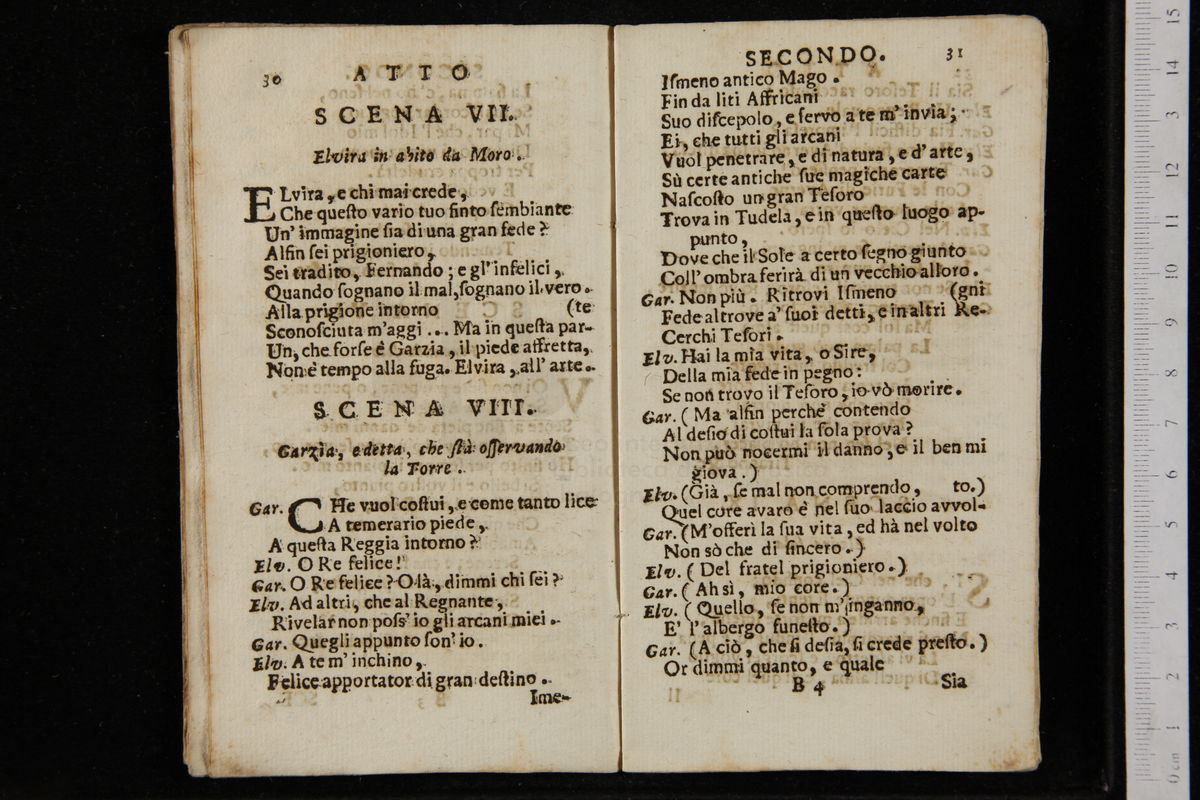 30 ATTO
SCENA VII.
Elvira in abito da Moro.
ELvira, e chi mai crede,
Che queſto vario tuo finto ſembiante
Un' immagine ſia di una gran fede?
Alfin ſei prigioniero,
Sei tradito, Fernando; e gl' infelici,
Quando ſognano il mal, ſognano il vero.
Alla prigione intorno (te
Sconoſciuta m'aggi ... Ma in queſta par-
Un, che forſe è Garzia, il piede affretta,
Non è tempo alla fuga. Elvira, all' arte.
SCENA VIII.
Garzìa, e detta, che ſtà oſſervando
la Torre.
Gar. CHe vuol coſtui, e come tanto lice
A temerario piede,
A queſta Reggia intorno?
Elv. O Re felice!
Gar. O Re felice? Olà, dimmi chi ſei?
Elv. Ad altri, che al Regnante,
Rivelar non poſs' io gli arcani miei.
Gar. Quegli appunto ſon' io.
Elv. A te m' inchino,
Felice apportator di gran deſtino.
Ime-
SECONDO. 31
Iſmeno antico Mago.
Fin da liti Affricani
Suo diſcepolo, e ſervo a te m' invia;
Ei, che tutti gli arcani
Vuol penetrare, e di natura, e d' arte,
Sù certe antiche ſue magiche carte
Naſcoſto un gran Teſoro
Trova in Tudela, e in queſto luogo ap-
punto,
Dove che il Sole a certo ſegno giunto
Coll' ombra ferirà di un vecchio alloro.
Gar. Non più. Ritrovi Iſmeno (gni
Fede altrove a' ſuoi detti, e in altri Re-
Cerchi Teſori.
Elv. Hai la mia vita, o Sire,
Della mia fede in pegno:
Se non trovo il Teſoro, io vò morire.
Gar. (Ma alfin perchè contendo
Al deſio di coſtui la ſola prova?
Non può nocermi il danno, e il ben mi
giova.)
Elv. (Già, ſe mal non comprendo, to.)
Quel core avaro è nel ſuo laccio avvol-
Gar. (M'offerì la ſua vita, ed hà nel volto
Non sò che di ſincero.)
Elv. (Del fratel prigioniero.)
Gar. (Ah sì, mio core.)
Elv. (Quello, ſe non m' inganno,
E' l' albergo funeſto.)
Gar. (A ciò, che ſi deſia, ſi crede preſto.)
Or dimmi quanto, e quale
B 4 Sia